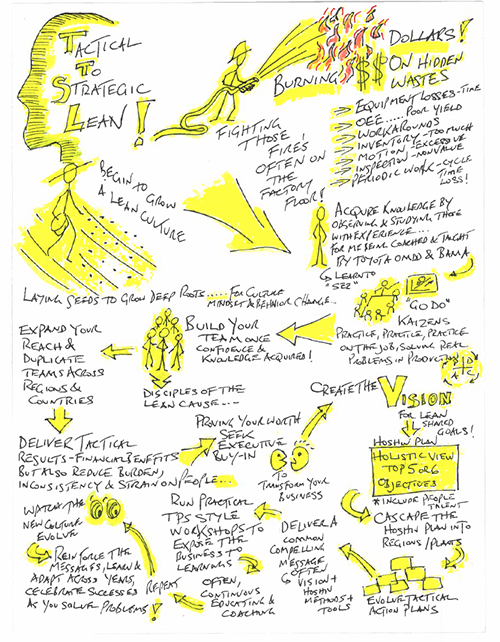 TACTICAL
TO
STRATEGIC
LEAN!
FIGHTING
THOSE
FIRES!
OFTEN ON
THE
FACTORY
FLOOR!
BURNING
DOLLARS!
$$ ON HIDDEN
WASTES
EQUIPMENT LOSSES-TIME
OEE..... POOR YIELD
WORKAROUNDS
INVENTORY-TOO MUCH
MOTION-EXCESSIVE
INSPECTION-NONVALUE
PERIODIC WORK-CYCLE
TIME
LOSS!
BEGIN TO
GROW
A LEAN CULTURE
ACQUIRE KNOWLEDGE BY
OBSERVING & STUDYING THOSE
WITH EXPERIENCE...
FOR ME BEING COACHED & TAUGHT
BY TOYOTA OMDD & BAMA
LEARN TO
"SEE"
LAYING SEEDS TO GROW DEEP ROOTS..... FOR CULTURE
MINDSET & BEHAVIOR CHANGE...
"GO DO"
KAIZENS
PRACTICE, PRACTICE, PRACTICE
ON THE JOB, SOLVING REAL
PROBLEMS IN PRODUCTION
BUILD YOUR
TEAM ONCE
CONFIDENCE &
KNOWLEDGE ACQUIRED!
EXPAND YOUR
REACH &
DUPLICATE
TEAMS ACROSS
REGIONS &
COUNTRIES
DISCIPLES OF THE
LEAN CAUSE...
DELIVER TACTICAL
RESULTS-FINANCIAL BENEFITS
BUT ALSO REDUCE BURDEN,
INCONSISTENCY & STRAIN ON PEOPLE...
PROVING YOUR WORTH
SEEK
EXECUTIVE
BUY-IN
TO
TRANSFORM YOUR
BUSINESS
CREATE THE VISION
FOR LEAN
SHARED
GOALS!
HOSHIN PLAN
HOLISTIC VIEW
TOP 5 OR 6
OBJECTIVES
* INCLUDE PEOPLE
TALENT
CASCADE THE
HOSHIN PLAN INTO
REGIONS/PLANTS
EVOLVE TACTICAL
ACTION PLANS
DELIVER A
COMMON
COMPELLING
MESSAGE
OFTEN
VISION+
HOSHIN
METHODS+
TOOLS
RUN PRACTICAL
TPS STYLE
WORKSHOPS TO
EXPOSE THE
BUSINESS TO
LEARNINGS
OFTEN,
CONTINUOUS
EDUCATING &
COACHING
REPEAT
WATCH THE
NEW CULTURE
EVOLVE
REINFORCE THE
MESSAGES, LEARN &
ADAPT ACROSS YEARS,
CELEBRATE SUCCESSES
AS YOU SOLVE PROBLEMS!